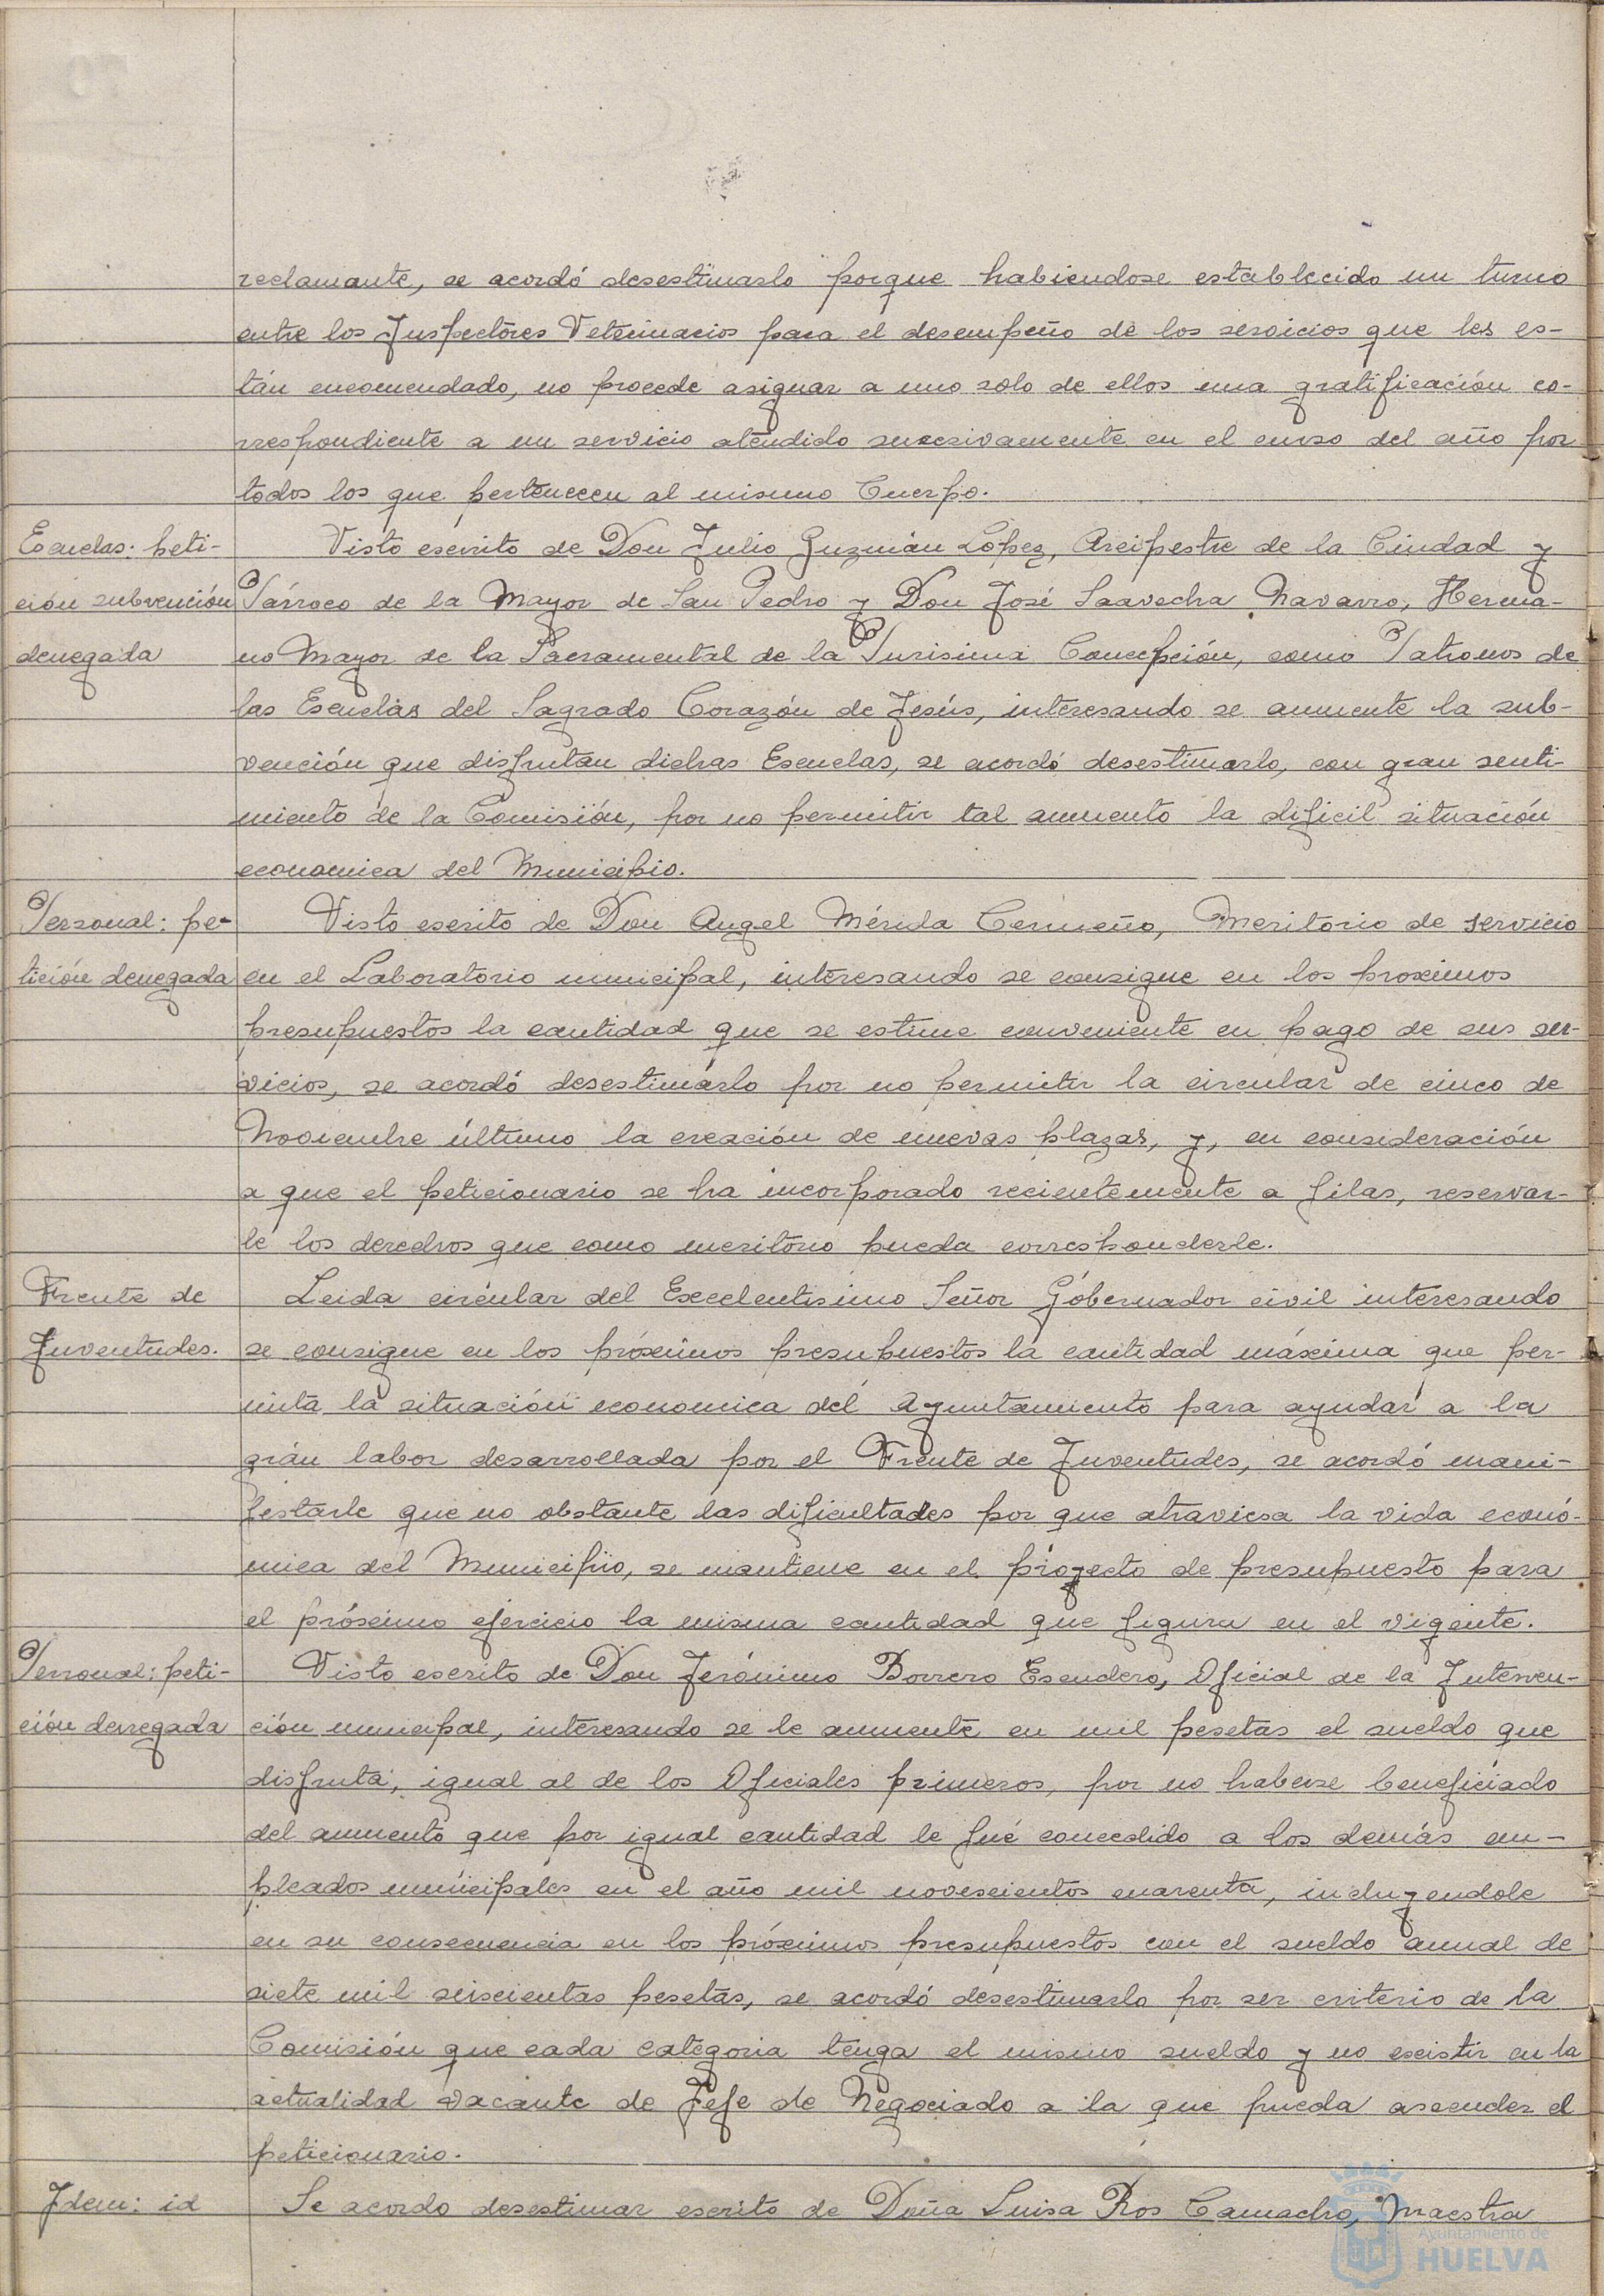 reclamante, se acordó desestimarlo porque habiendose establecido un turno
entre los Juspectores Veterinarios para el desempeño de los servicios que les es-
tán encomendado, no procede asignar a uno solo de ellos una gratificación co-
rrespondiente a un servicio atendido sucesivamente en el curso del año por
todos los que pertenecen al mismo Cuerpo.
Escuelas: peti-
ción subvención
denegada
Visto escrito de Don Julio Guzmán López, Arcipestre de la Ciudad y
Párroco de la Mayor de San Pedro y Don José Saavedra Navarro, Herma-
no Mayor de la Sacramental de la Purisima Concepción, como Patronos de
las Escuelas del Sagrado Corazón de Jesús, interesando se aumente la sub-
vención que disfrutan dichas Escuelas, se acordó desestimarlo, con gran senti-
miento de la Comisión, por no permitir tal aumento la dificil situación
economica del Municipio.
Personal: pe-
tición denegada
Visto escrito de Don Angel Mérida Cermeño, Meritorio de servicio
en el Laboratorio municipal, interesando se consigne en los proximos
presupuestos la cantidad que se estime conveniente en pago de sus ser-
vicios, se acordó desestimarlo por no permitir la circular de cinco de
Noviembre último la creación de nuevas plazas, y, en consideración
a que el peticionario se ha incorporado recientemente a filas, reservar-
le los derechos que como meritorio pueda corresponderle.
Frente de
Juventudes.
Leida circular del Excelentisimo Señor Góbernador civil interesando
se consigne en los próximos presupuestos la cantidad máxima que per-
mita la situación economica del Ayuntamiento para ayudar a la
grán labor desarrollada por el Frente de Juventudes, se acordó mani-
festarle que no obstante las dificultades por que atraviesa la vida econó-
mica del Municipio, se mantiene en el proyecto de presupuesto para
el próximo ejercicio la misma cantidad que figura en el vigente.
Personal: peti-
ción denegada
Visto escrito de Don Jerónimo Borrero Escudero, Oficial de la Interven-
ción municipal, interesando se le aumente en mil pesetas el sueldo que
disfruta, igual al de los Oficiales primeros, por no haberse beneficiado
del aumento que por igual cantidad le fué concedido a los demás em-
pleados municipales en el año mil novescientos cuarenta, incluyendole
en su consecuencia en los próximos presupuestos con el sueldo anual de
siete mil seiscientas pesetas, se acordó desestimarlo por ser criterio de la
Comisión que cada categoria tenga el mismo sueldo y no existir en la
actualidad vacante de Jefe de Negociado a la que pueda ascender el
peticionario.
Idem: id
Se acordo desestimar escrito de Doña Luisa Ros Camacho, Maestra
Ayuntamiento de
HUELVA